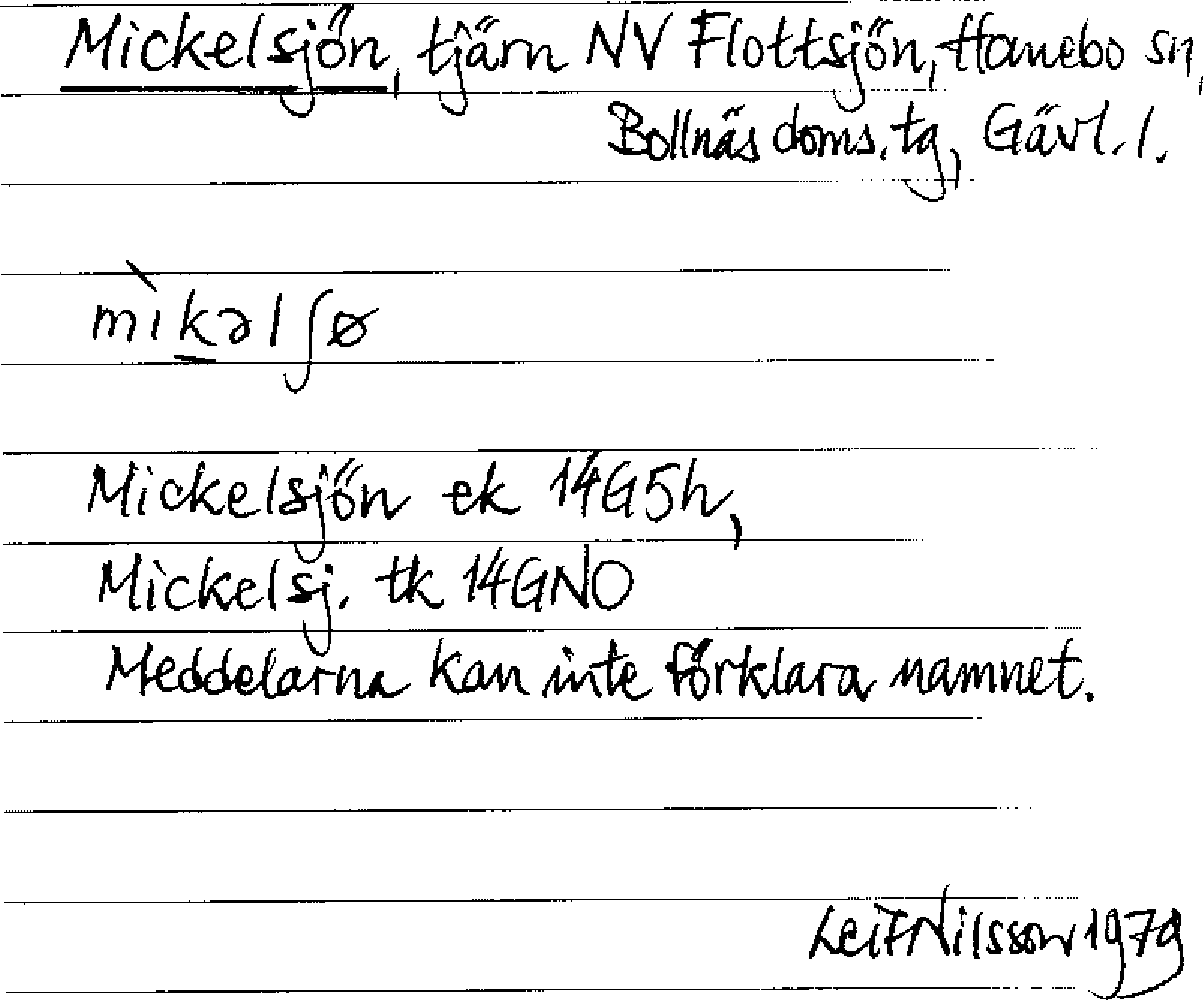 Mickelsjön, tjärn NV Flottsjön, Hanebo sn,
Bollnäs doms. tg, Gävl. l.
mìkəlʃø
Mickelsjön ek 14G5h,
Mickelsj. tk 14GNO
Meddelarna kan inte förklara namnet.
Leif Nilsson 1979